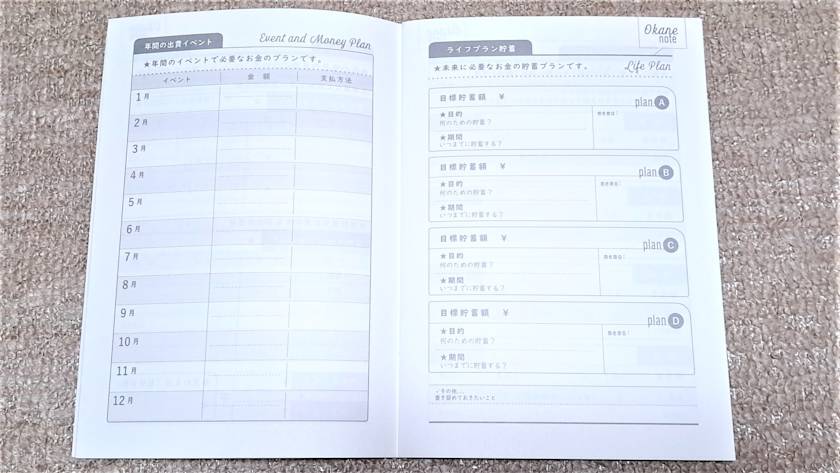 年間の出費イベント
Event and Money Plan
★年間のイベントで必要なお金のプランです。
イベント 金額 支払方法
1月
2月
3月
4月
5月
6月
7月
8月
9月
10月
11月
12月
Okane
note
ライフプラン貯蓄
Life Plan
★未来に必要なお金の貯蓄プランです。
目標貯蓄額 ¥
plan A
★目的
何のための貯蓄?
★期間
いつまでに貯蓄する?
目標貯蓄額 ¥
plan B
★目的
何のための貯蓄?
★期間
いつまでに貯蓄する?
目標貯蓄額 ¥
plan C
★目的
何のための貯蓄?
★期間
いつまでに貯蓄する?
目標貯蓄額 ¥
plan D
★目的
何のための貯蓄?
★期間
いつまでに貯蓄する?
書き留めておきたいこと